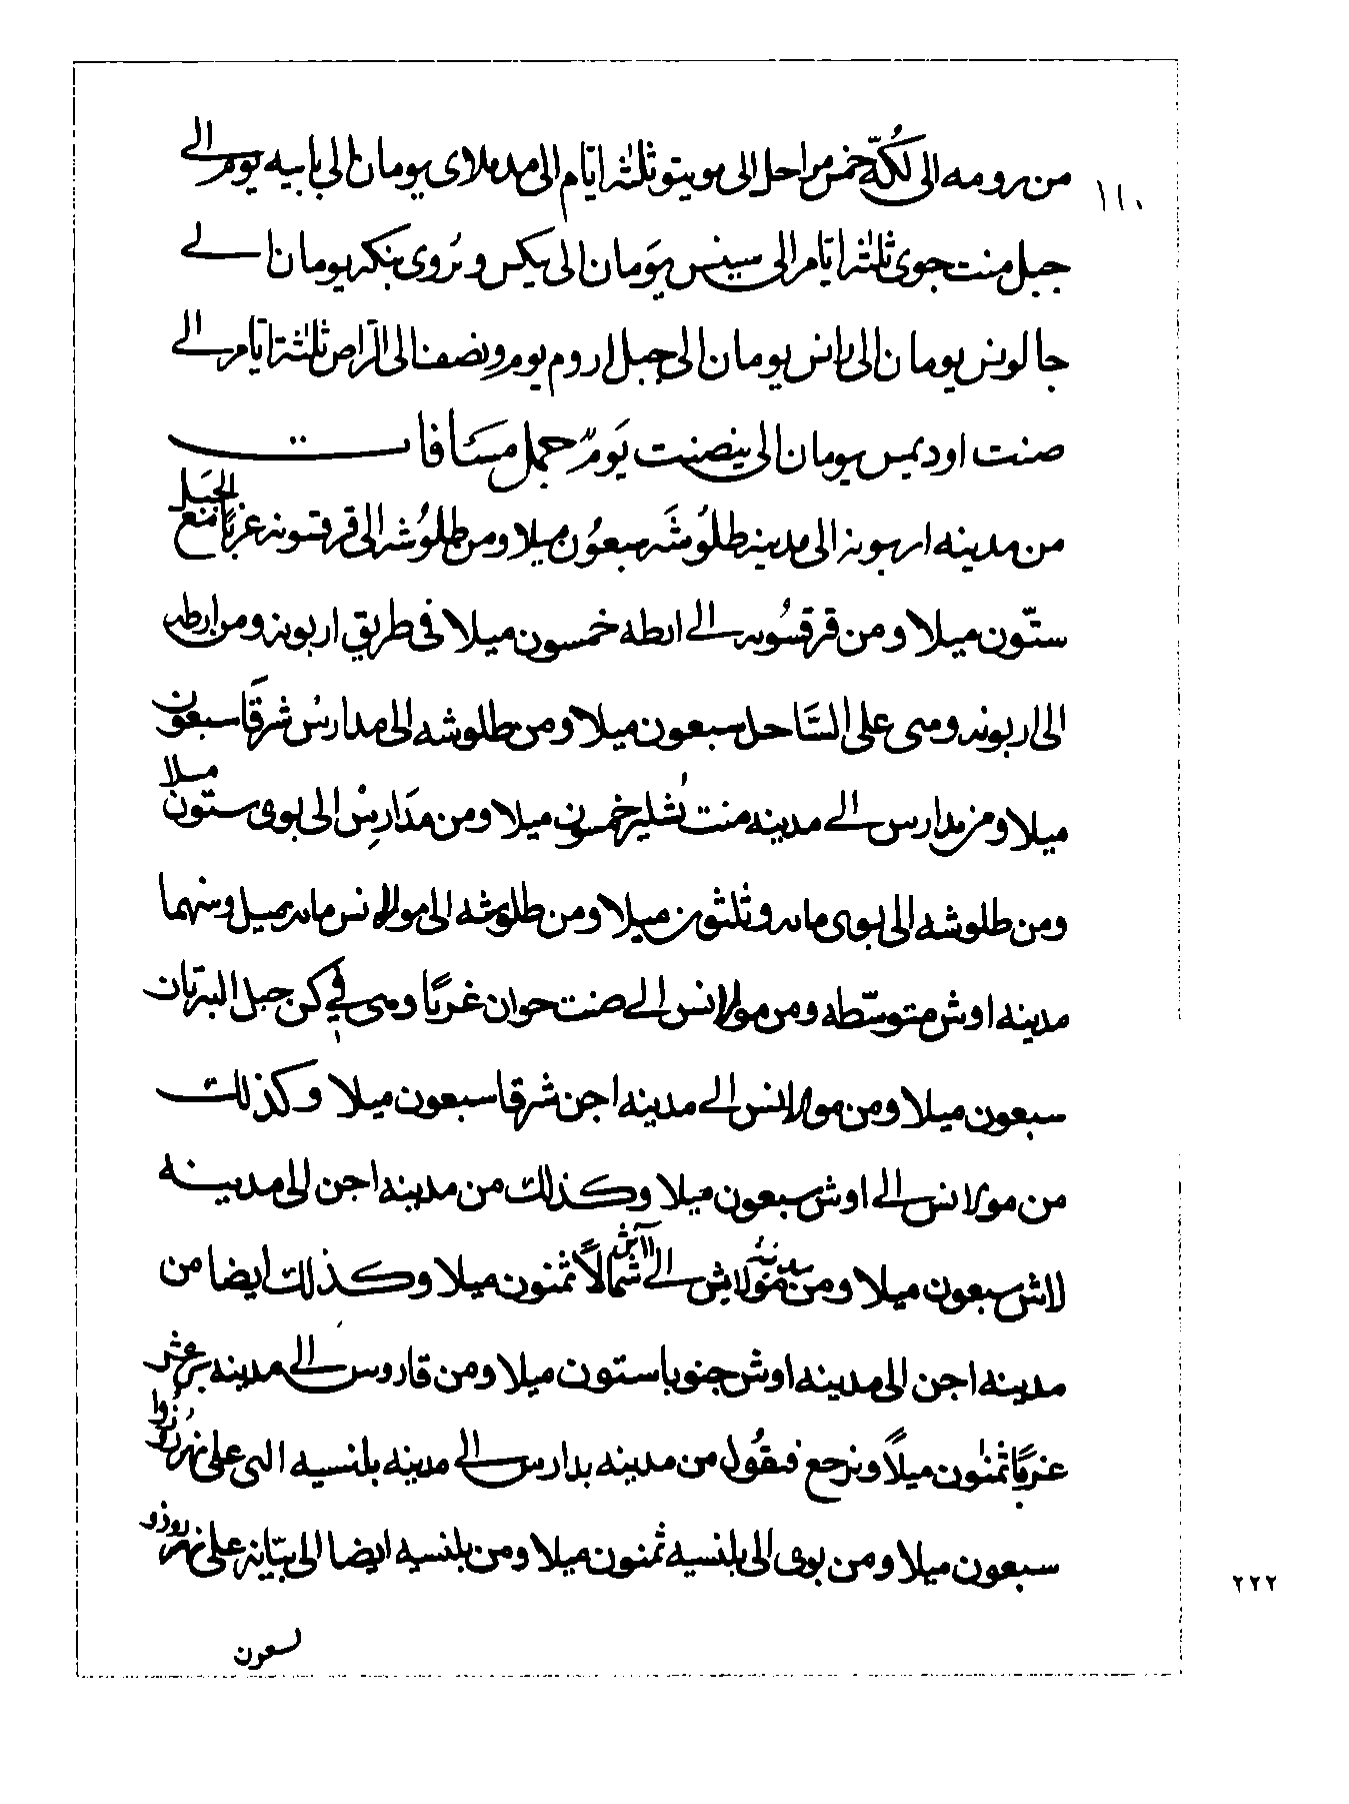 ١١٠
من رومه الى لكّه خمس مراحل الى مويتو ثلثة ايّام الى مدملاى يومان الى بابيه يوم الى
جبل منت جوى ثلثة ايّام الى سينس يومان الى يكس وبُروى بنكه يومان الى
جالونس يومان الى رانس يومان الى جبل اروم يوم ونصف الى الراص ثلثة ايّام الى
صنت اوديمس يومان الى ينصنت يوم جمل مسافات
من مدينه اربونة الى مدينة طلُوشَه سبعُون ميلا ومن طلُوشه الى قرقسونة غربًا مع الجبل
ستّون ميلا ومن قرقسُونه الى ابطه خمسون ميلا فى طريق اربونة ومن ابطه
الى اربونه وهى على السَّاحل سبعون ميلا ومن طلوشه الى مدارس شرقًا سبعون
ميلا ومن بدارس الى مدينه منت بُشلير خمسون ميلا ومن مدارس الى بوى ستون ميلا
ومن طلوشه الى بوى مايه وثلثون ميلا ومن طلوشه الى مولانس مايه ميل وبينهما
مدينه اوش متوسّطه ومن مولانس الى صنت جوان غربًا وهى فى ركن جبل البرتات
سبعون ميلا ومن مولانس الى مدينه اجن شرقا سبعون ميلا وكذلك
من مولانس الى اوش سبعون ميلا وكذلك من مدينه اجن الى مدينه
لااش سبعون ميلا ومن مدينة مولانس الى لااش شمالاً ثمنون ميلا وكذلك ايضا من
مدينه اجن الى مدينه اوش جنوبا ستون ميلا ومن قاروس الى مدينه برغش
غربًا ثمنون ميلاً ونرجع فنقُول من مدينه بدارس الى مدينه بلنسيه التى على نهر رُذَنُوا
سبعون ميلا ومن بوى الى بلنسيه ثمنون ميلا ومن بلنسيه ايضا الى بيّانة على نهر روذنو
سبعون
٢٢٢